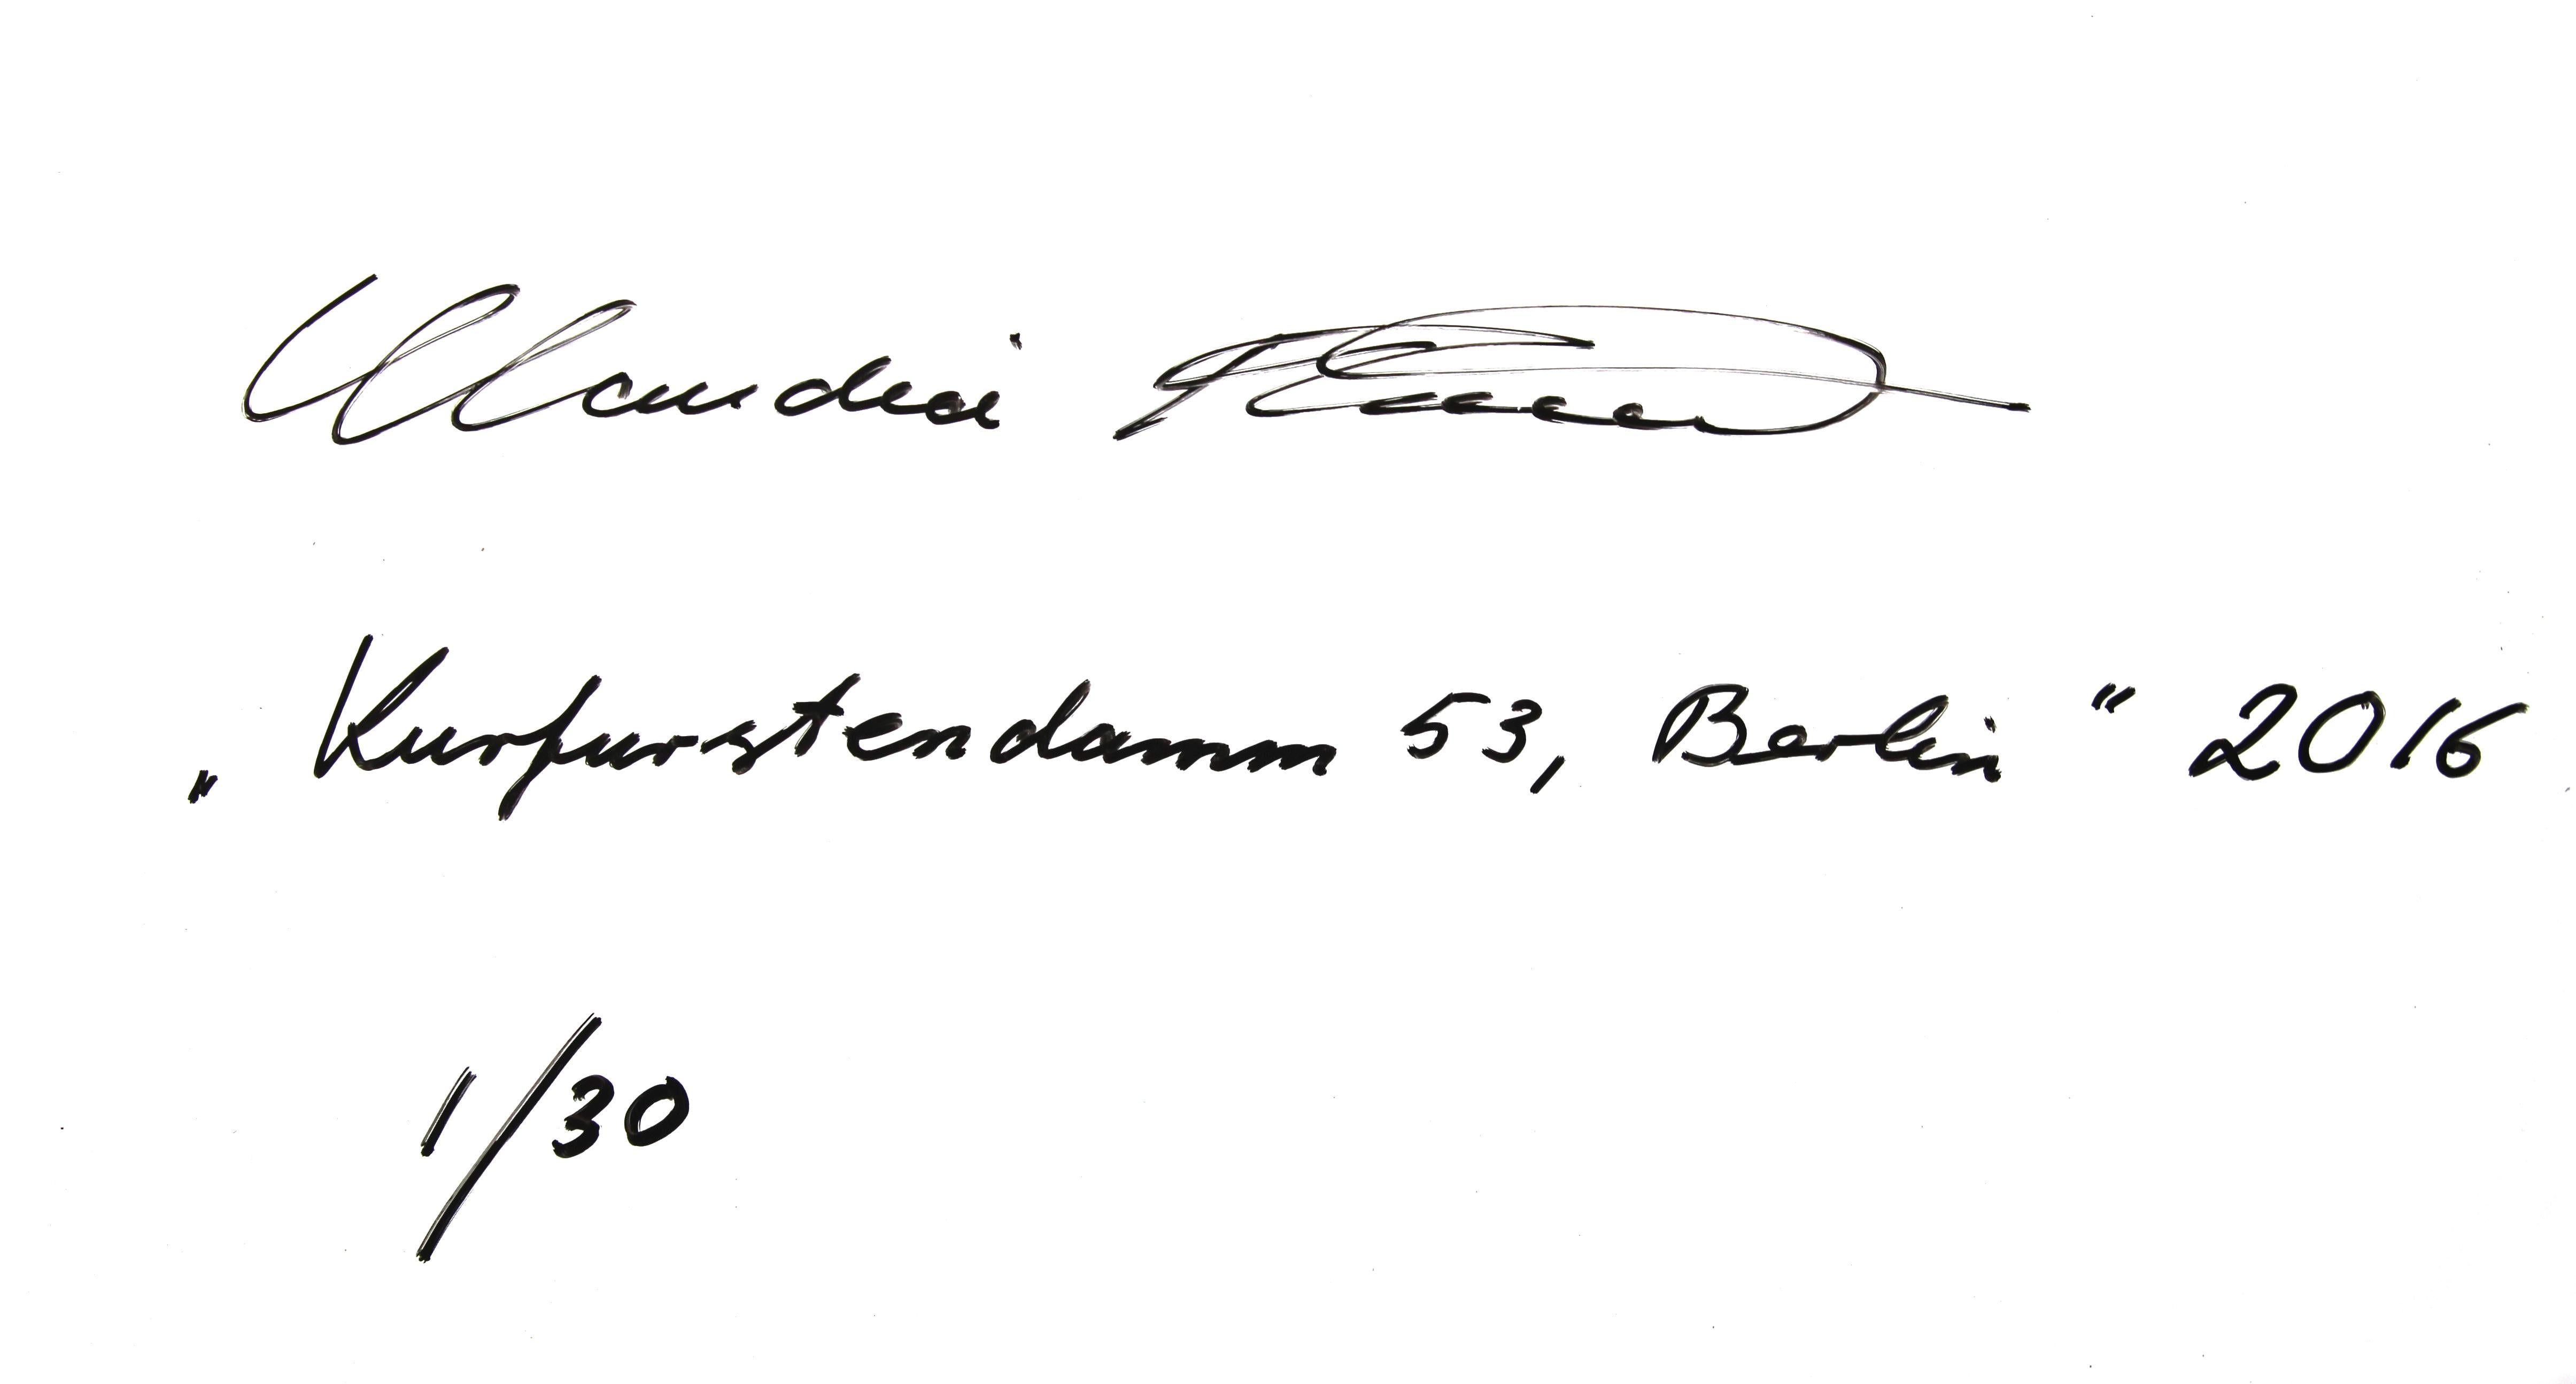 Claudia
„Kurfurstendamm 53, Berlin“ 2016
1/30